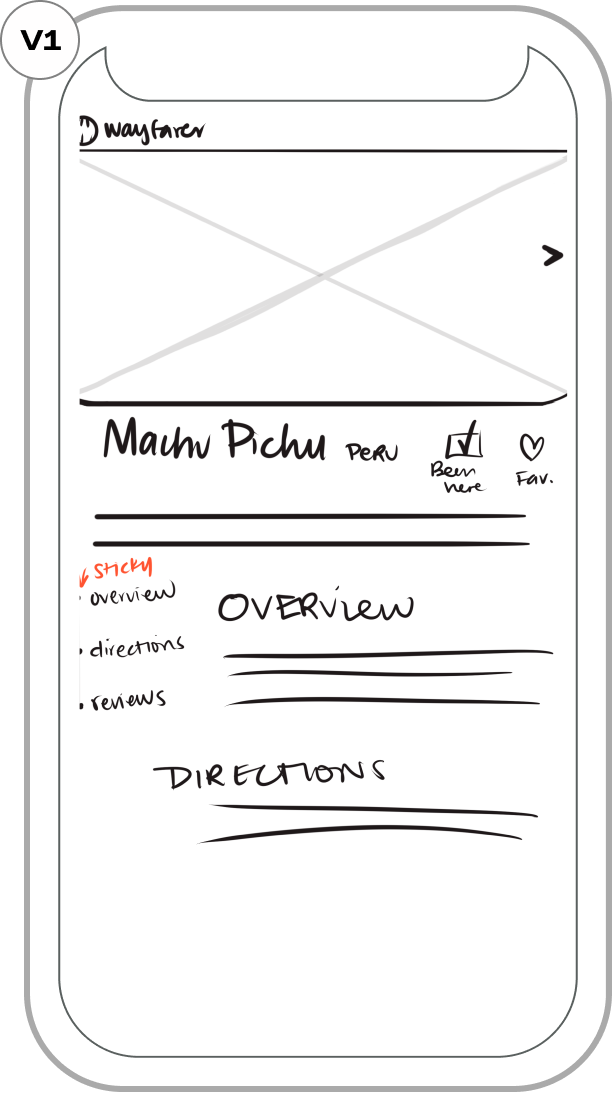 V1
wayfarer
Machu Pichu PERU
Been
here
Fav.
sticky
overview
OVERView
directions
reviews
DIRECTIONS